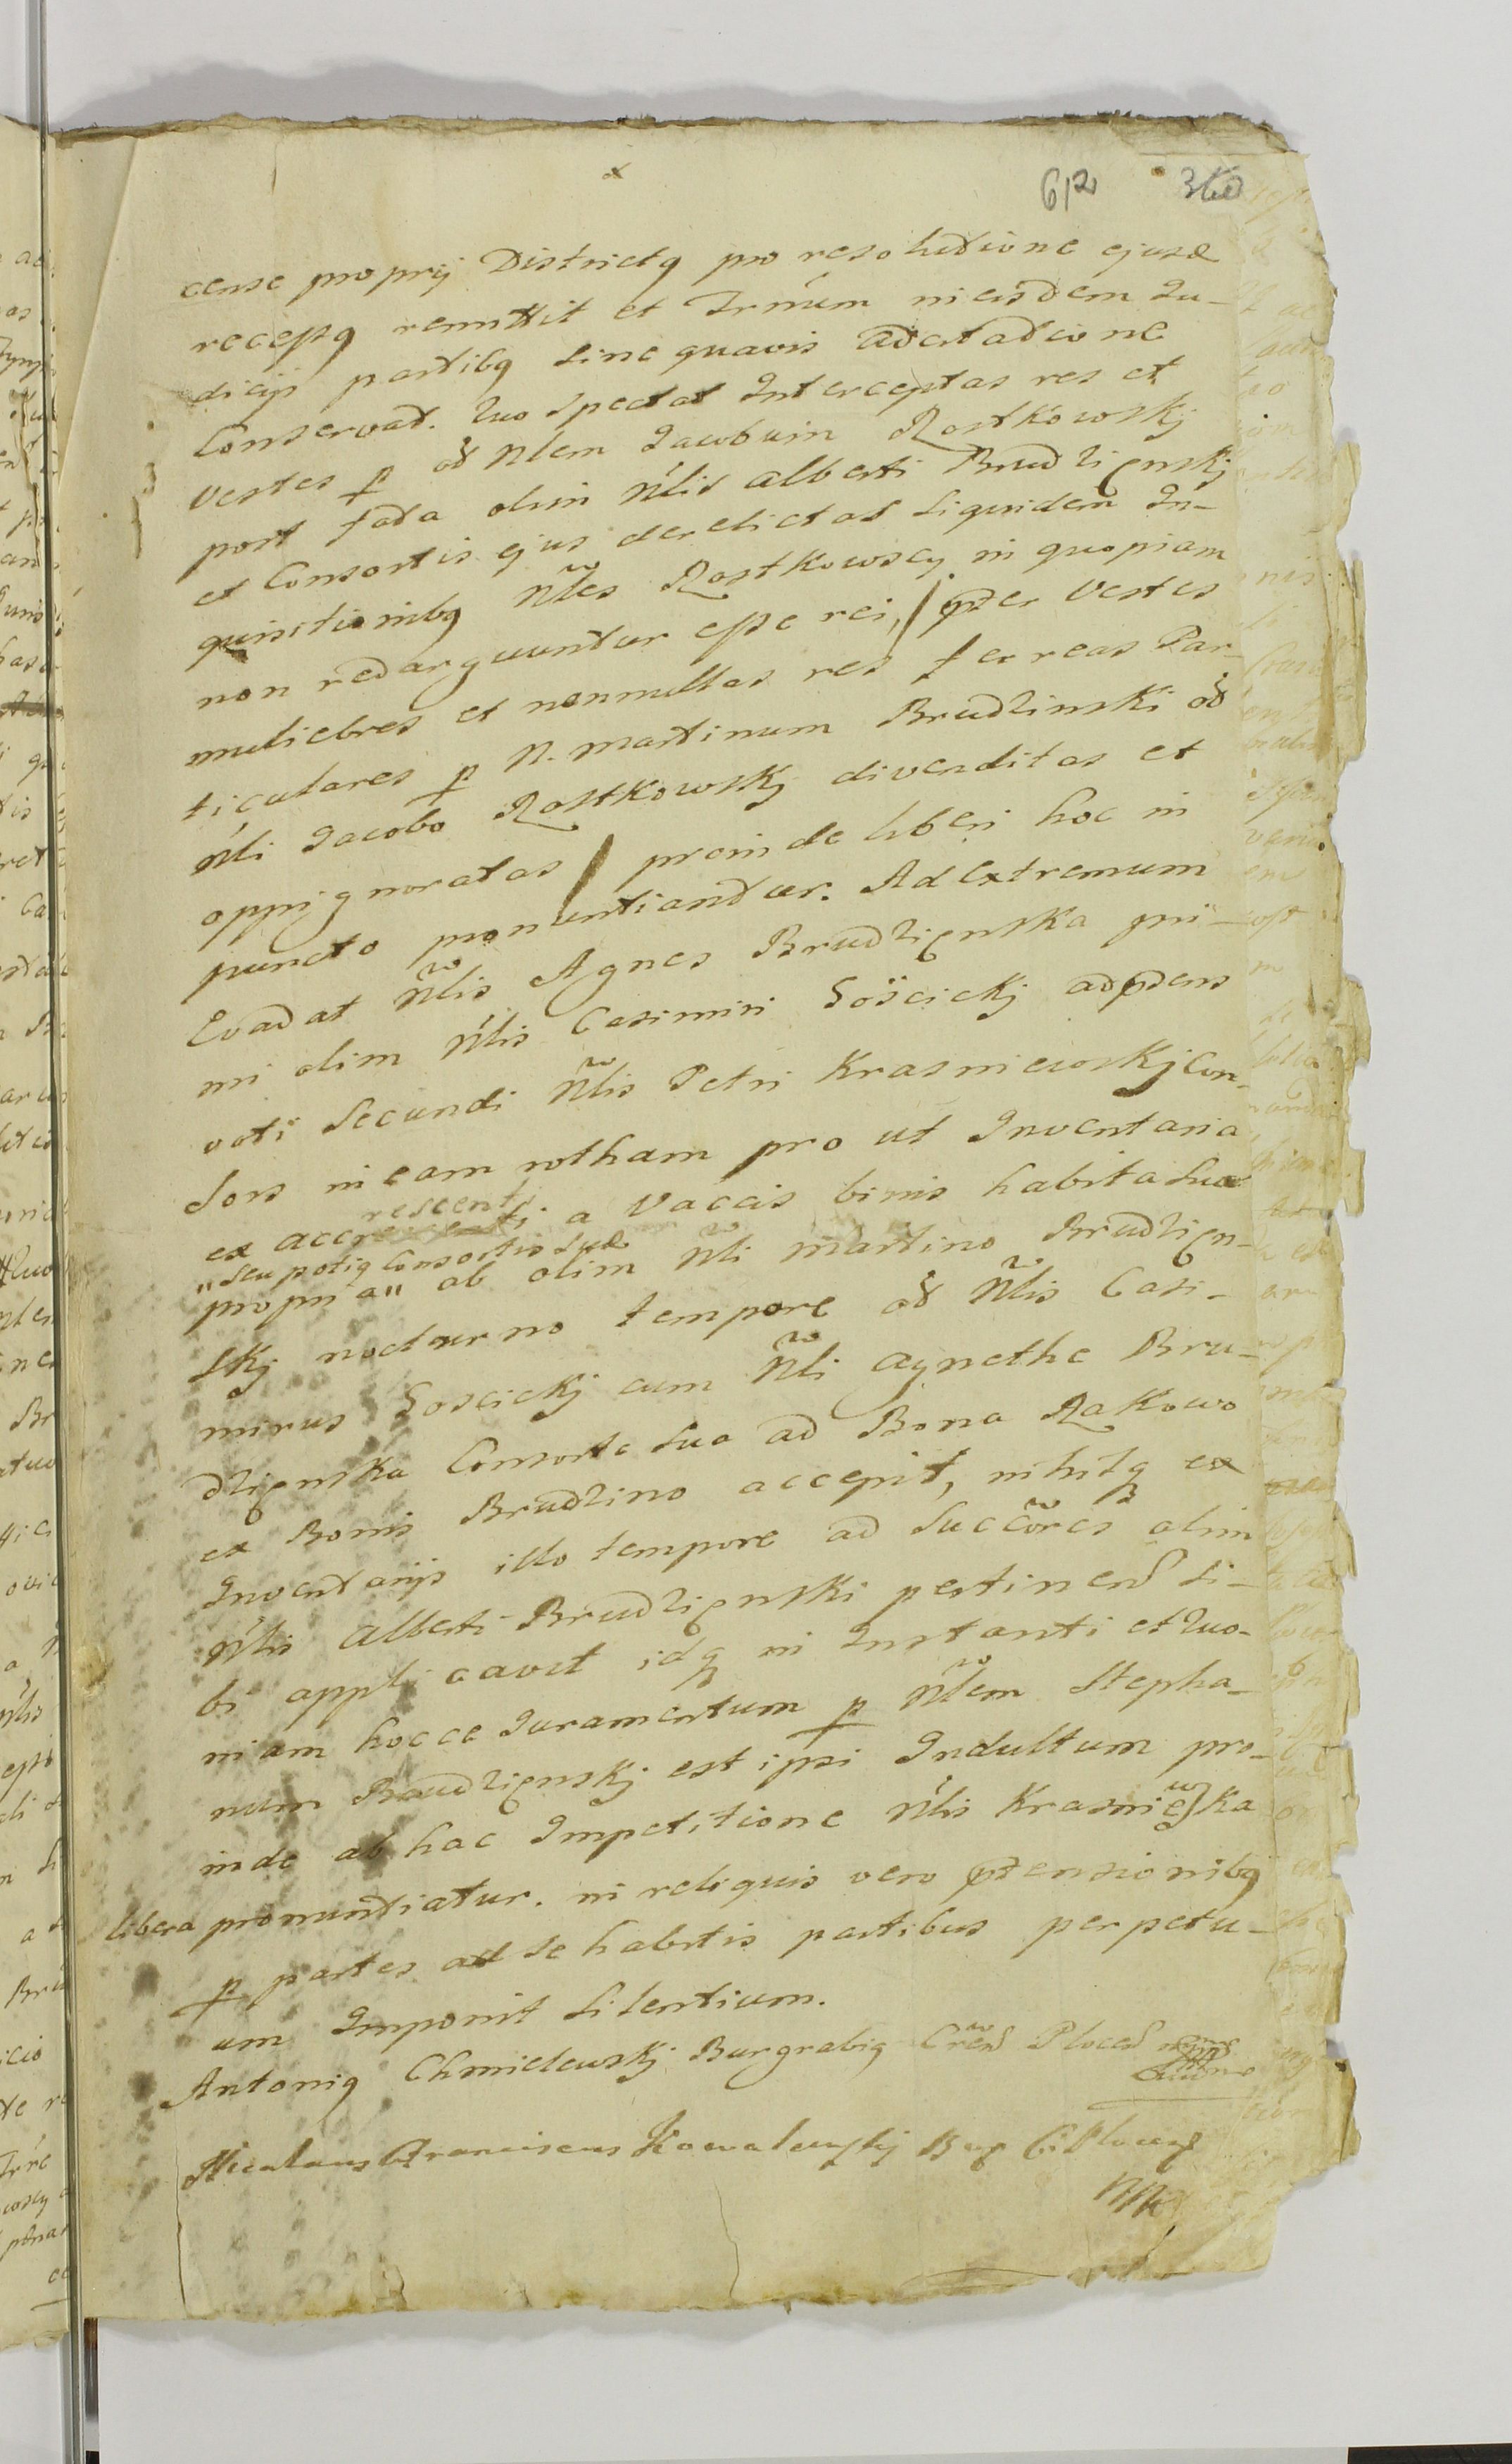 x
612 360
cense proprij Districtq pro resolutione ejusd
recepsq remittit et Trnum in eisdem Ju-
dicijs partibq sine quavis adcitatione
Conservat. Quo Spectat Interceptas res et
Vestes p od Nlem Jacobum Rostkowskj
post fata olim Nlis Alberti Brudzięnskj
et Consortis ejus derelictas siquidem In-
quisitionibq Nles Rostkowscy in quopiam
non redarguuntur esse rei, / pter Vestes
muliebres et nonnullas res ferreas Par-
ticulares p N. Martinum Brudzinski od
Nli Jacobo Rostkowskj divenditas et
oppignoratas / proinde liberi hoc in
puncto pronuntiantur. Ad extremum
Evadat Nlis Agnes Brudzięnska pri-
mi olim Nlis Casimiri Gościckj adpdens
voti Secundi Nlis Petri Krasniewskj Con-
sors in eam rotham pro ut Inventaria
rescenti
ex accrescenti a Vaccis binis habita sua
"seu potiq Consortis suæ
propria" ab olim Nli Martino Brudzięn-
skj nocturno tempore od Nlis Casi-
mirus Goscickj cum Nli Agnethe Bru-
dzięnska Consorte sua ad Bona Rakowo
ex Bonis Brudzino accepit, nihilq ex
Inventarijs illo tempore ad Succores olim
Nlis Alberti Brudzięnski pertinend si-
bi applicavit idq in Instanti et Quo-
niam hocce Juramentum p Nlem Stepha-
num Brudzięnskj est ipsi Indultum pro-
inde ab hac Impetitione Nlis Krasniewska
libera pronuntiatur. in reliquis vero ptensionibq
p partes ad se habitis partibus perpetu-
um Imponit Silentium.
Antoniq Chmielewskj Burgrabiq Crens Plocens mpp
Nicolaus Franciscus Kowalewskj Bur C Plocens